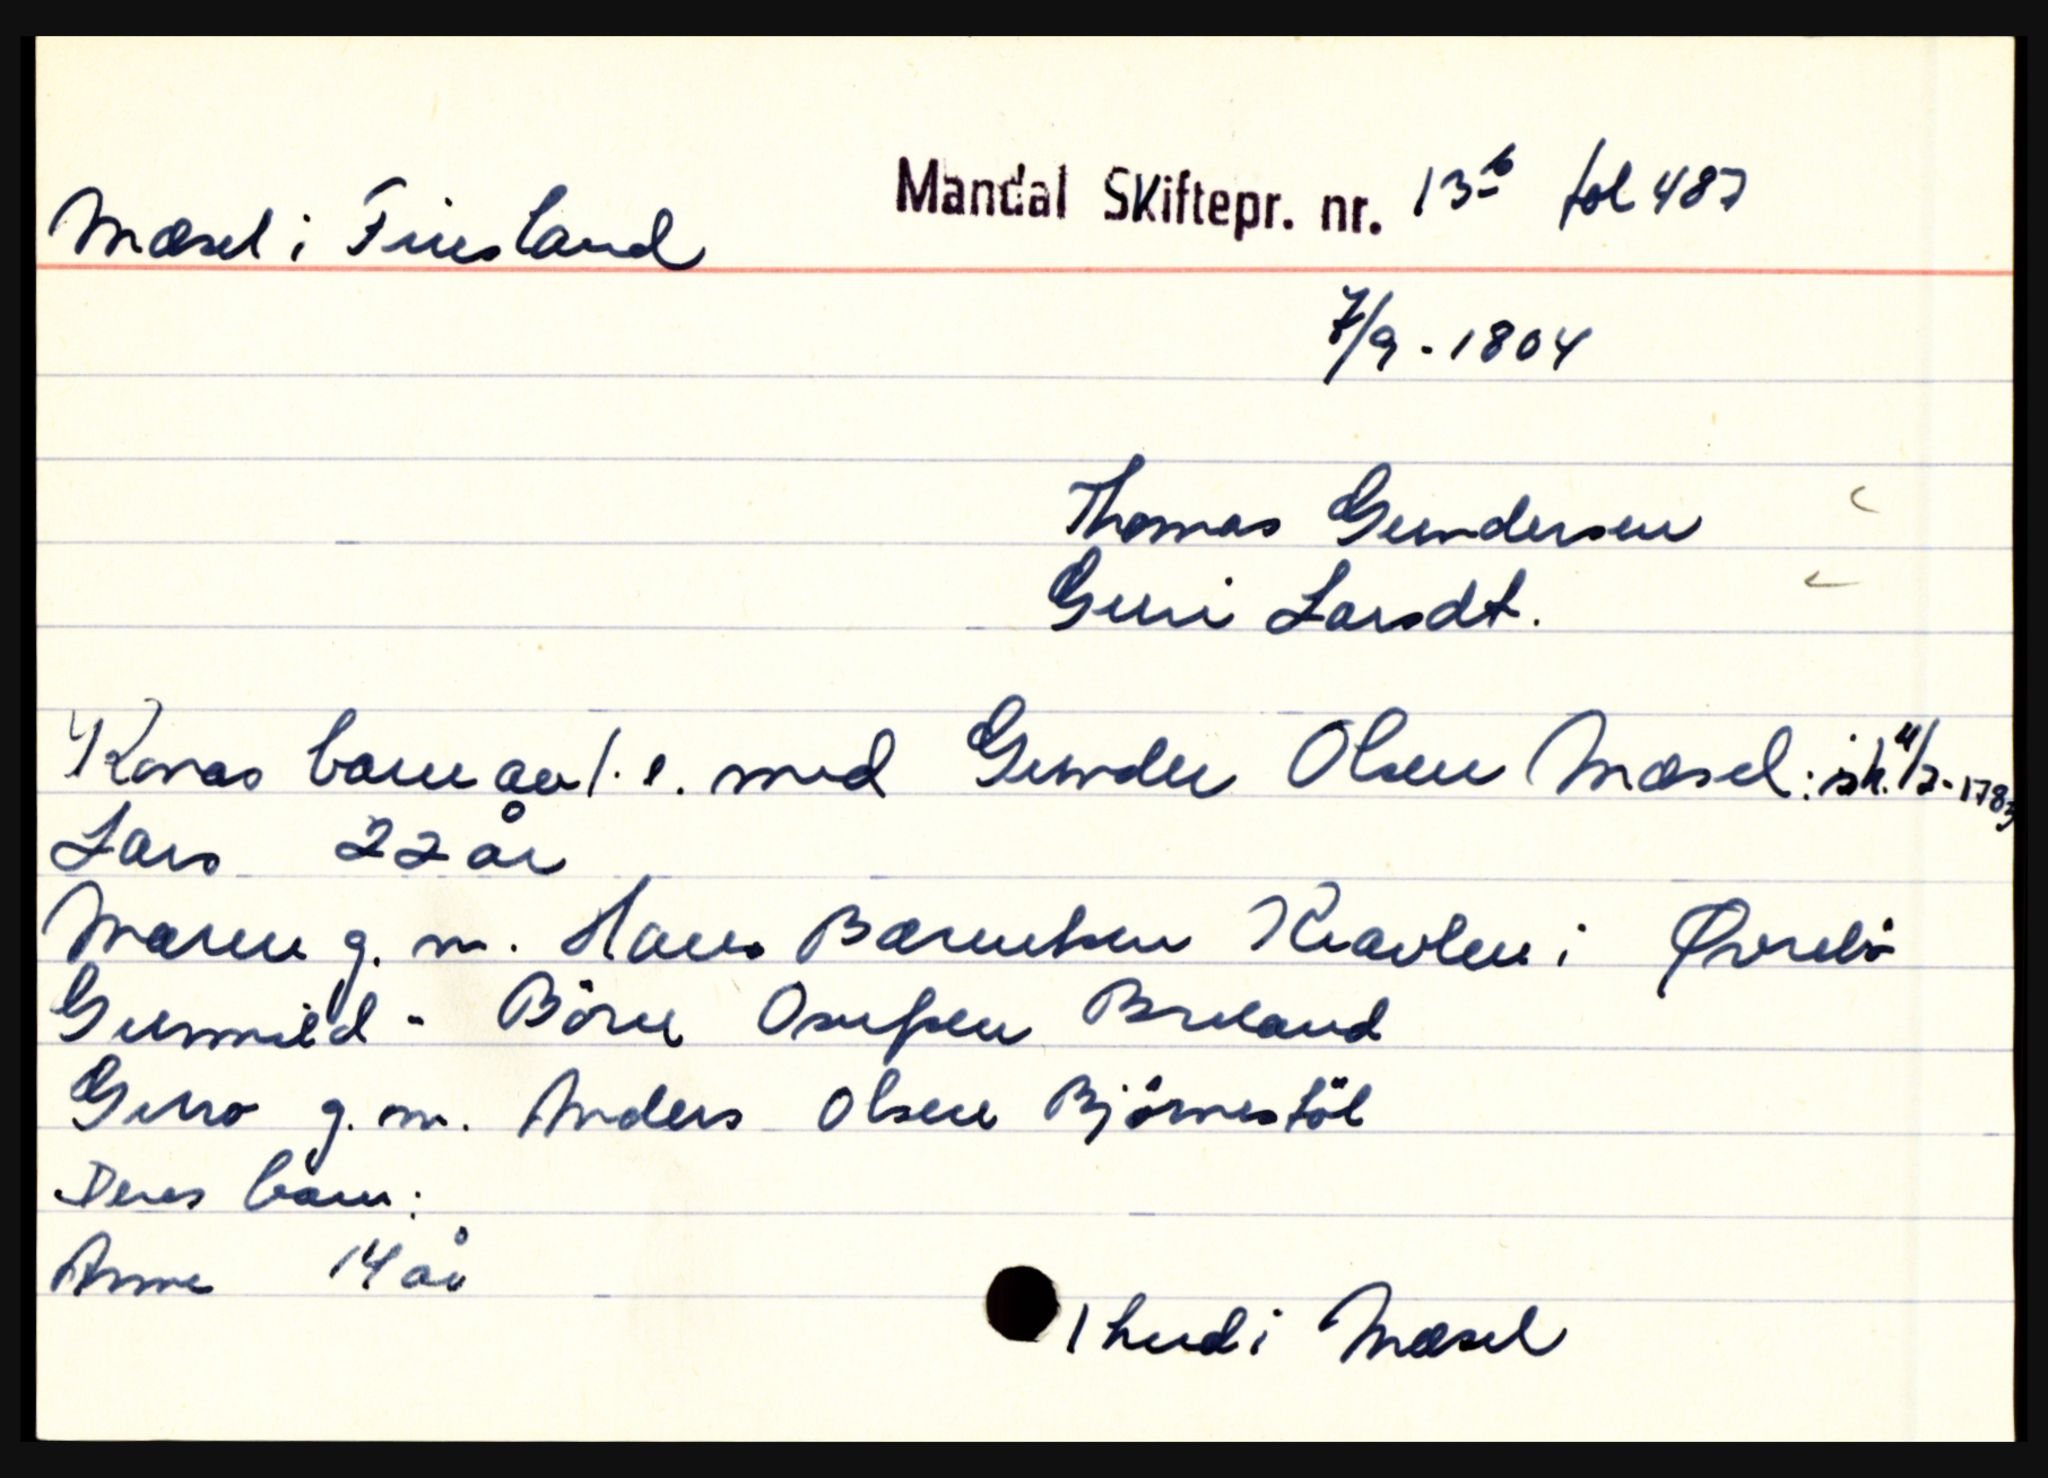 Mæsel i Finsland
Mandal Skiftepr. nr. 13b fol 487
7/9 - 1804
Thomas Gundersen
Guri Larsdt.
Konas barn av 1. e. med Gunder Olsen Mæsel: sk. 4/2-1783
Lars 22 år
Maren g. m. Hans Bærentsen Kravlen i Øvrebö
Gunnild - Börn Osufsen Breland
Guro g. m. Anders Olsen Björnestöl
Deres barn:
Anne 14 år
1 hud i Mæsel